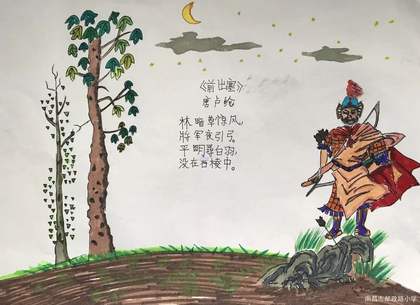 《前出塞》
唐卢纶
林暗草惊风，
将军夜引弓。
平明寻白羽，
没在石棱中。
南昌市邮政路小学